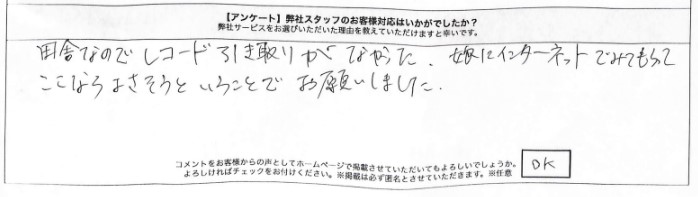 【アンケート】弊社スタッフのお客様対応はいかがでしたか？
弊社サービスをお選びいただいた理由を教えていただけますと幸いです。
田舎なのでレコード引き取りがなかった．娘にインターネットでみてもらって
ここならよさそうということでお願いしました．
コメントをお客様からの声としてホームページで掲載させていただいてもよろしいでしょうか。
よろしければチェックをお付けください。※掲載は必ず匿名とさせていただきます。※任意
OK